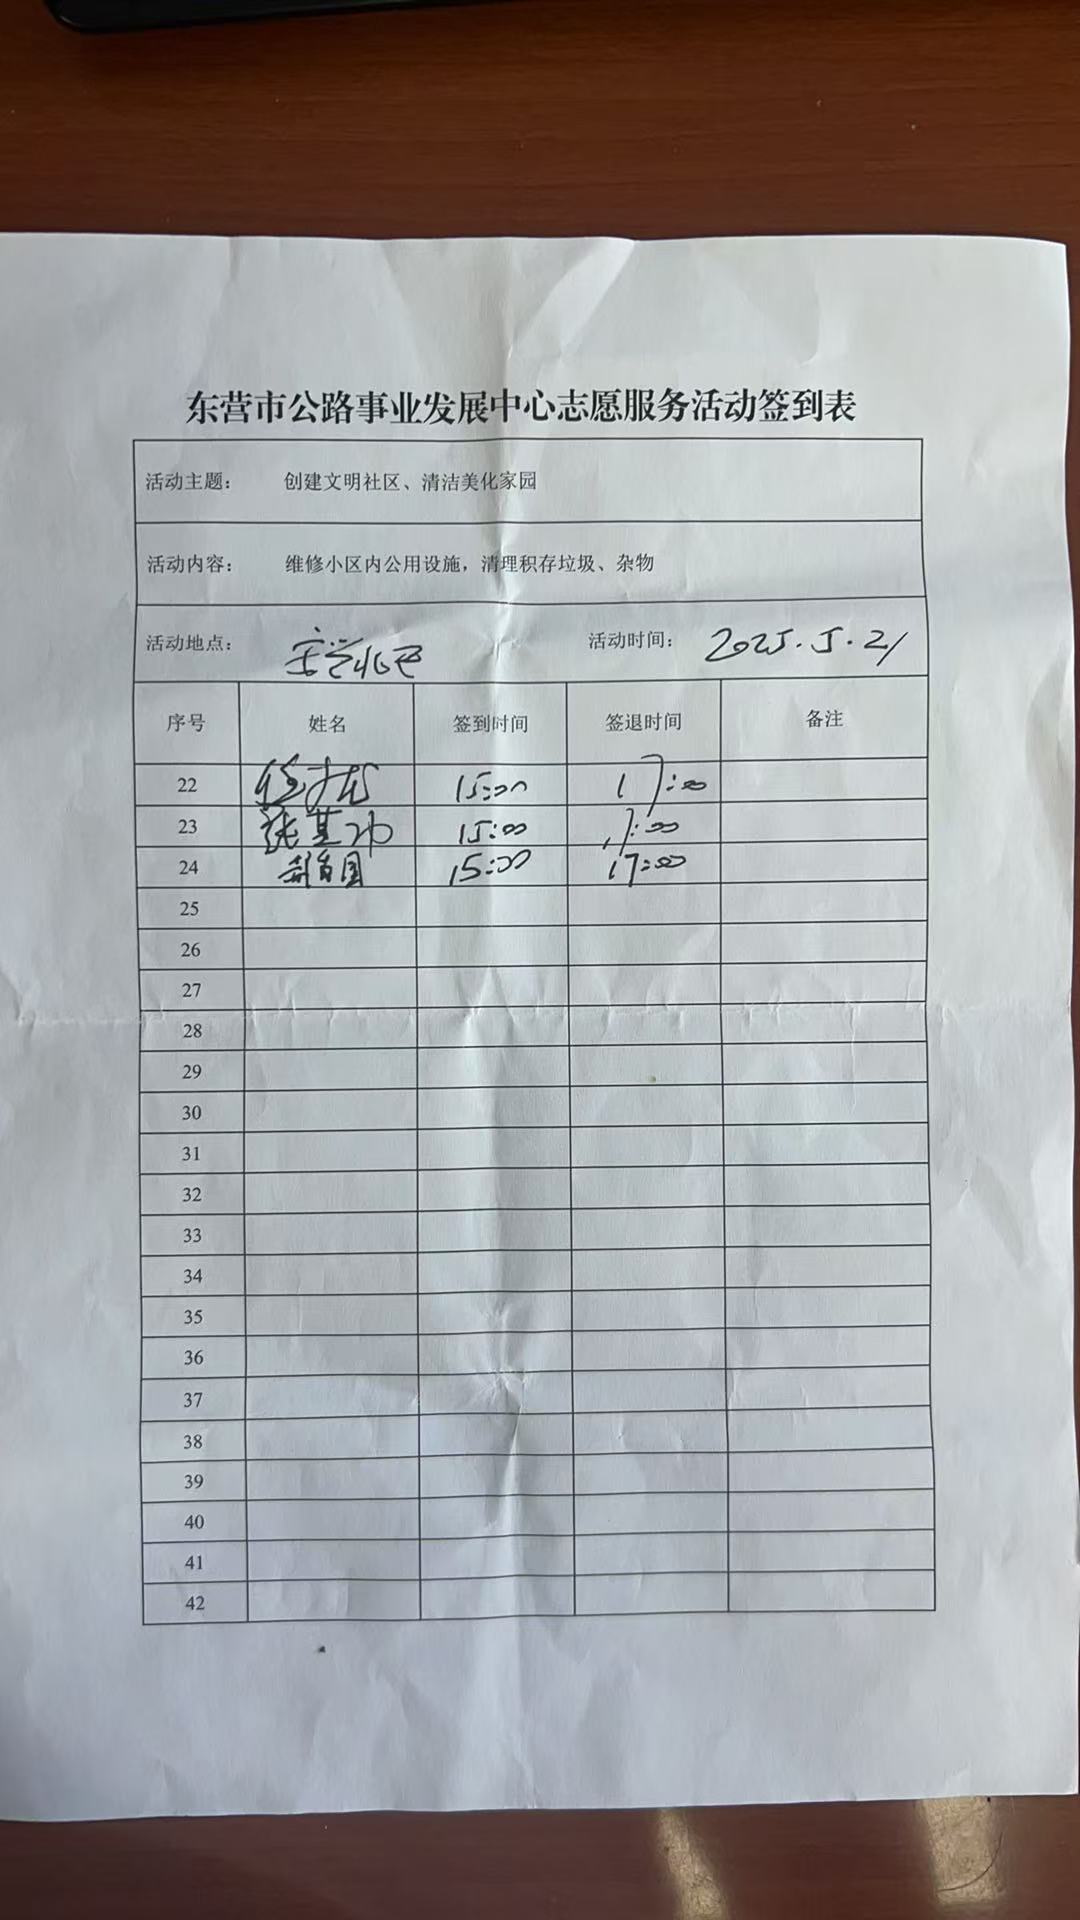 东营市公路事业发展中心志愿服务活动签到表
活动主题： 创建文明社区、清洁美化家园
活动内容： 维修小区内公用设施，清理积存垃圾、杂物
活动地点： 活动时间： 2025.5.21
序号 姓名 签到时间 签退时间 备注
22 15:00 17:00
23 张基功 15:00 17:00
24 15:00 17:00
25
26
27
28
29
30
31
32
33
34
35
36
37
38
39
40
41
42